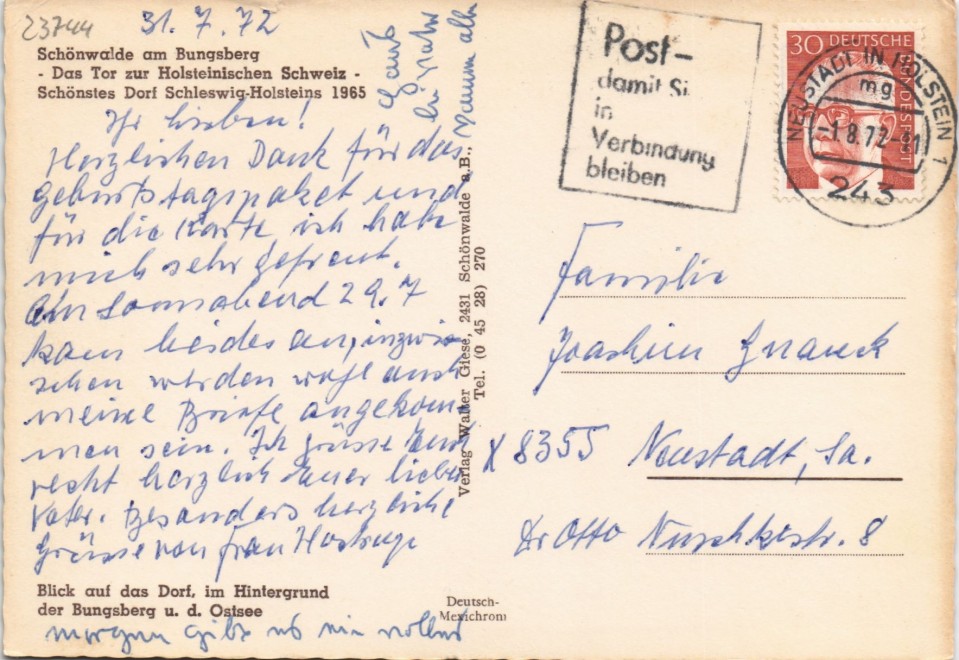 23744
31.7.72
Schönwalde am Bungsberg
- Das Tor zur Holsteinischen Schweiz -
Schönstes Dorf Schleswig-Holsteins 1965
Ihr Lieben!
Herzlichen Dank für das
Geburtstagspaket und
für die Karte, ich habe
mich sehr gefreut.
Am Sonnabend 29.7
kam beides an, inzwi
schen werden wohl auch
meine Briefe angekom
men sein. Ich grüsse Euch
recht herzlich Euer lieber
Vater. Besonders herzliche
Grüsse von Frau
Blick auf das Dorf, im Hintergrund
der Bungsberg u. d. Ostsee
morgen gibt es
wenn alle
Verlag Walter Giese, 2431 Schönwalde a.B.,
Tel. (0 45 28) 270
Deutsch-
Mexichrom
Post-
damit Si
in
Verbindung
bleiben
30 DEUTSCHE
BUNDESPOST
NEUSTADT IN HOLSTEIN 1
mg
-1.8.72-11
243
Familie
Joachim Gnauck
X 8355 Neustadt, Sa.
Dr Otto Nuschkestr. 8